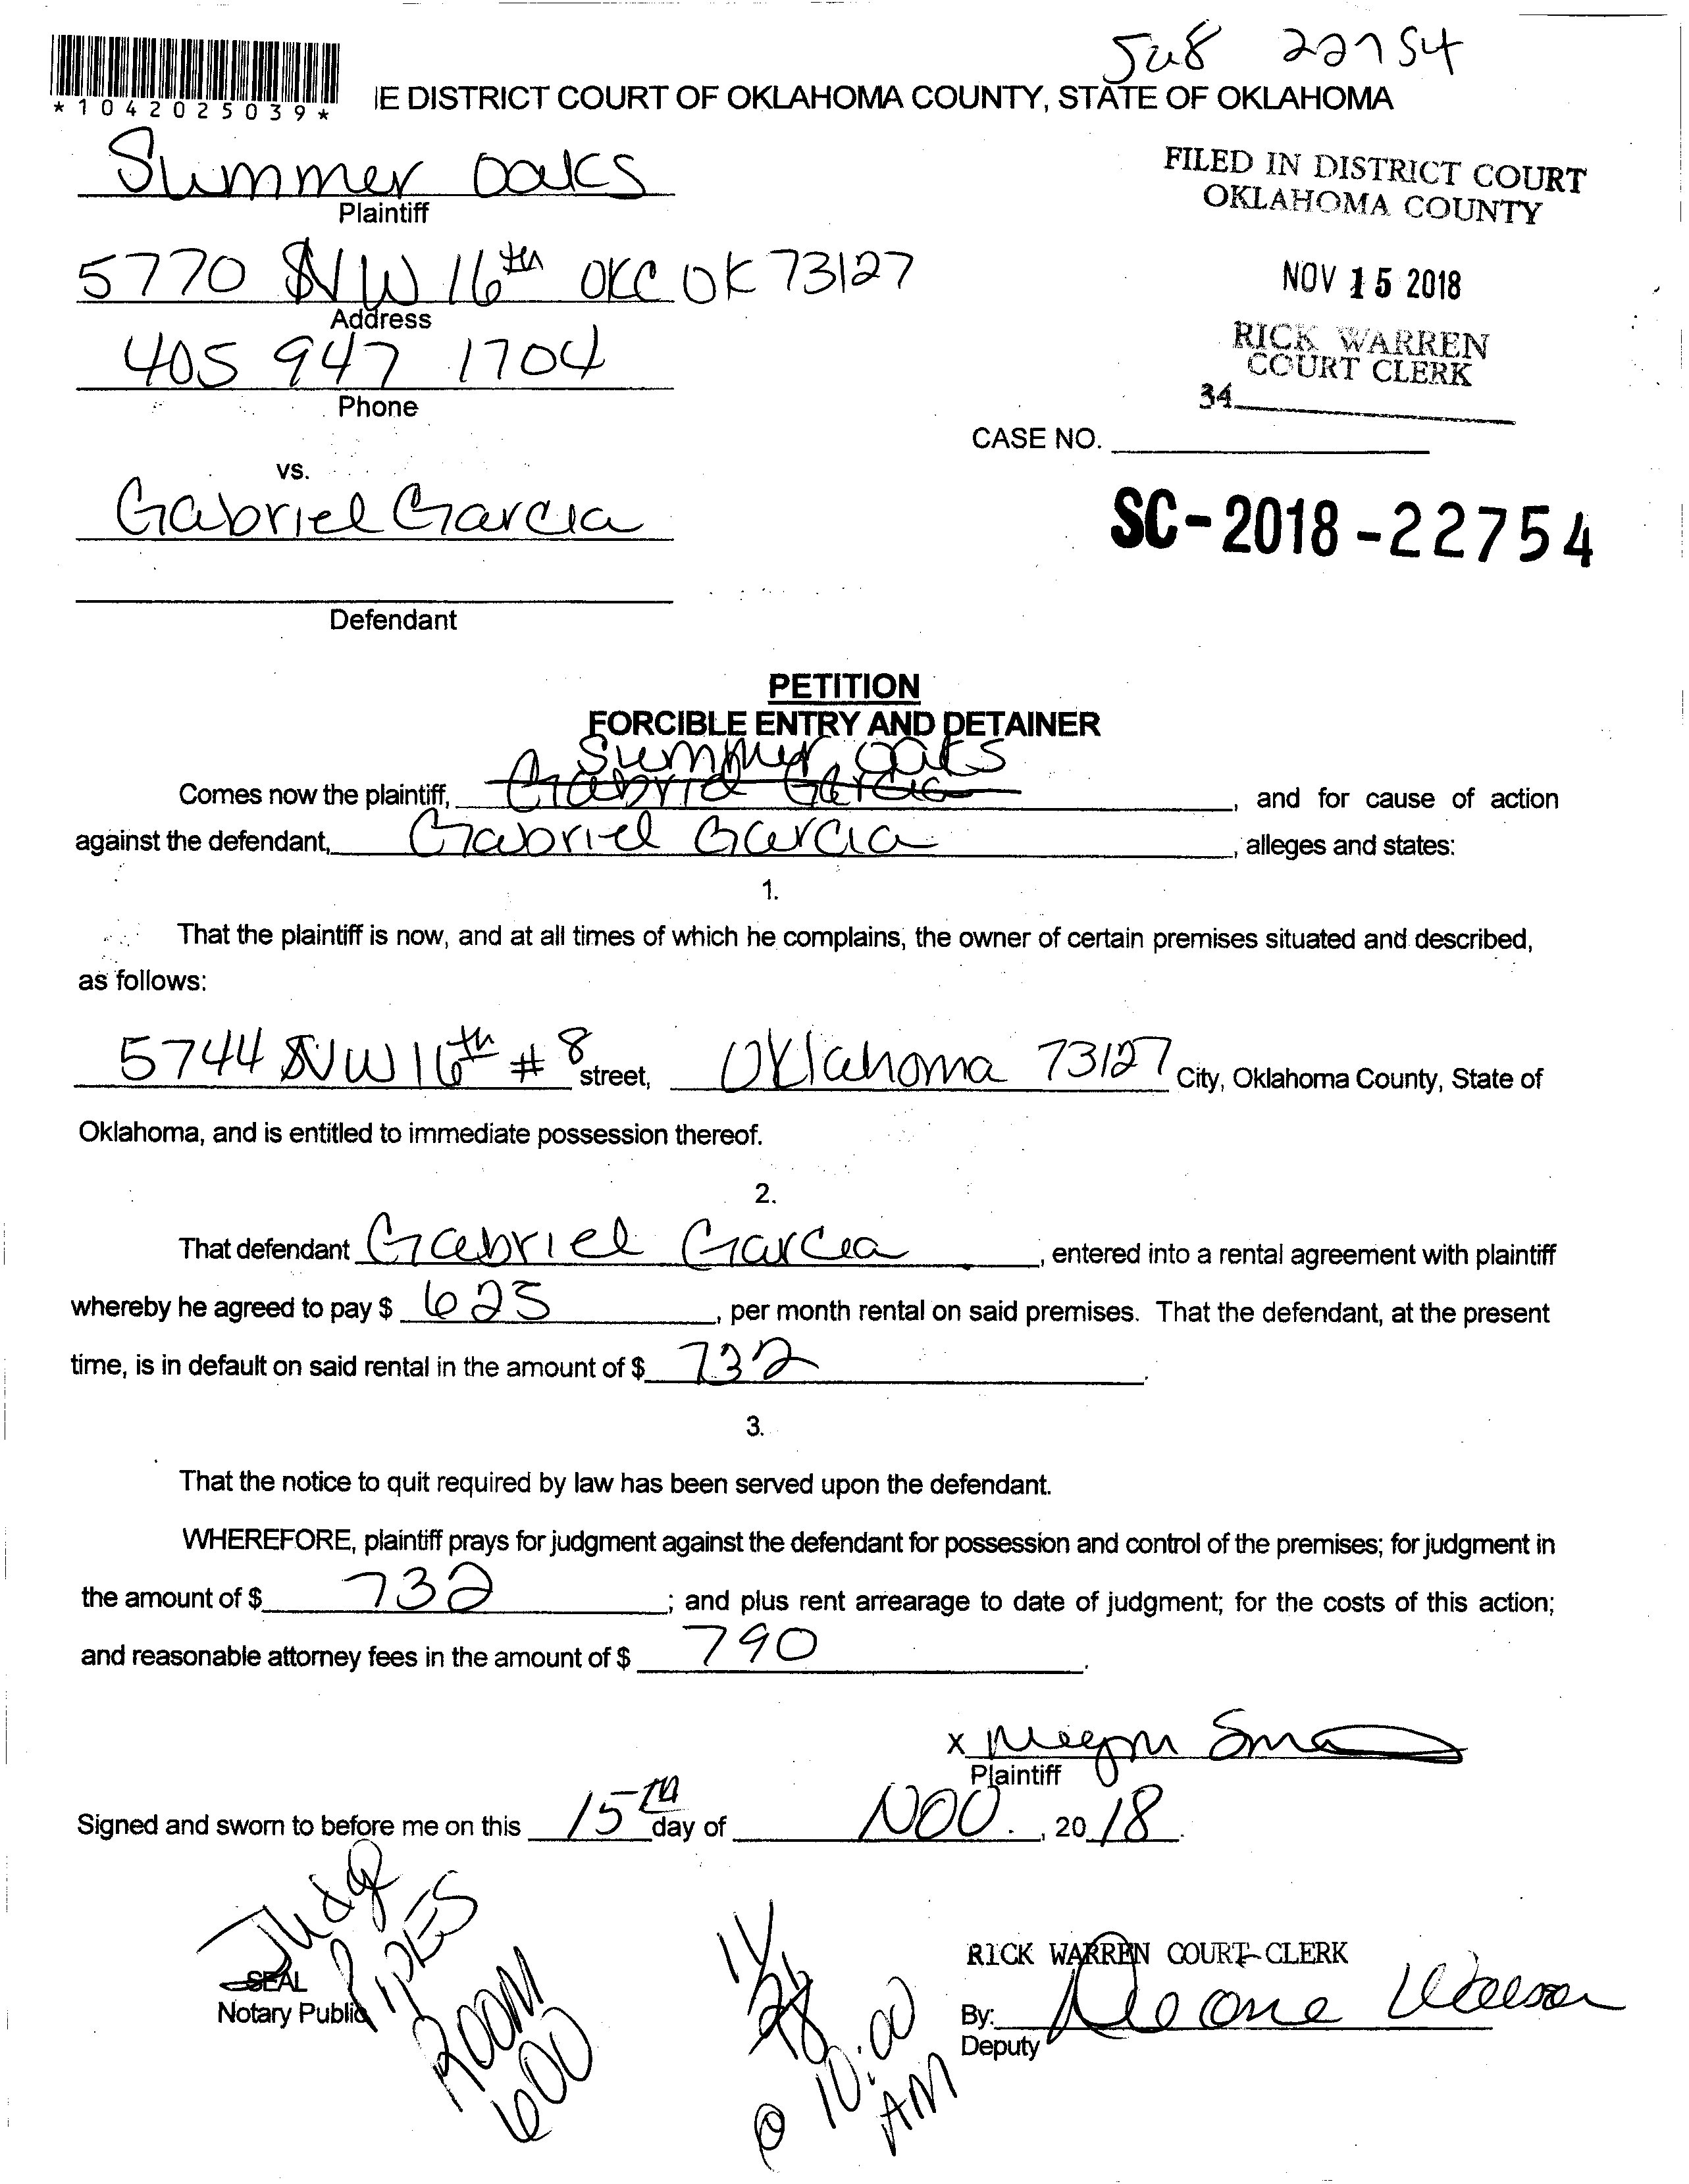 548 22754
*1042025039*
IE DISTRICT COURT OF OKLAHOMA COUNTY, STATE OF OKLAHOMA
Summer Oaks
Plaintiff
FILED IN DISTRICT COURT
OKLAHOMA COUNTY
5770 NW 16th OKC OK 73127
Address
NOV 15 2018
405 947 1704
Phone
RICK WARREN
COURT CLERK
34
CASE NO.
vs.
Gabriel Garcia
SC-2018-22754
Defendant
PETITION
FORCIBLE ENTRY AND DETAINER
Summer Oaks
Comes now the plaintiff, Gabriel Garcia, and for cause of action
against the defendant, Gabriel Garcia, alleges and states:
1.
That the plaintiff is now, and at all times of which he complains, the owner of certain premises situated and described,
as follows:
5744 NW 16th # 8 street, Oklahoma 73127 City, Oklahoma County, State of
Oklahoma, and is entitled to immediate possession thereof.
2.
That defendant Gabriel Garcia, entered into a rental agreement with plaintiff
whereby he agreed to pay $ 625, per month rental on said premises. That the defendant, at the present
time, is in default on said rental in the amount of $ 732.
3.
That the notice to quit required by law has been served upon the defendant.
WHEREFORE, plaintiff prays for judgment against the defendant for possession and control of the premises; for judgment in
the amount of $ 732; and plus rent arrearage to date of judgment; for the costs of this action;
and reasonable attorney fees in the amount of $ 790.
x Megan
Plaintiff
Signed and sworn to before me on this 15TH day of NOV., 2018.
Judge
PIPES
ROOM
600
SEAL
Notary Public
11/28
@ 10:00
AM
RICK WARREN COURT CLERK
By:
Deputy